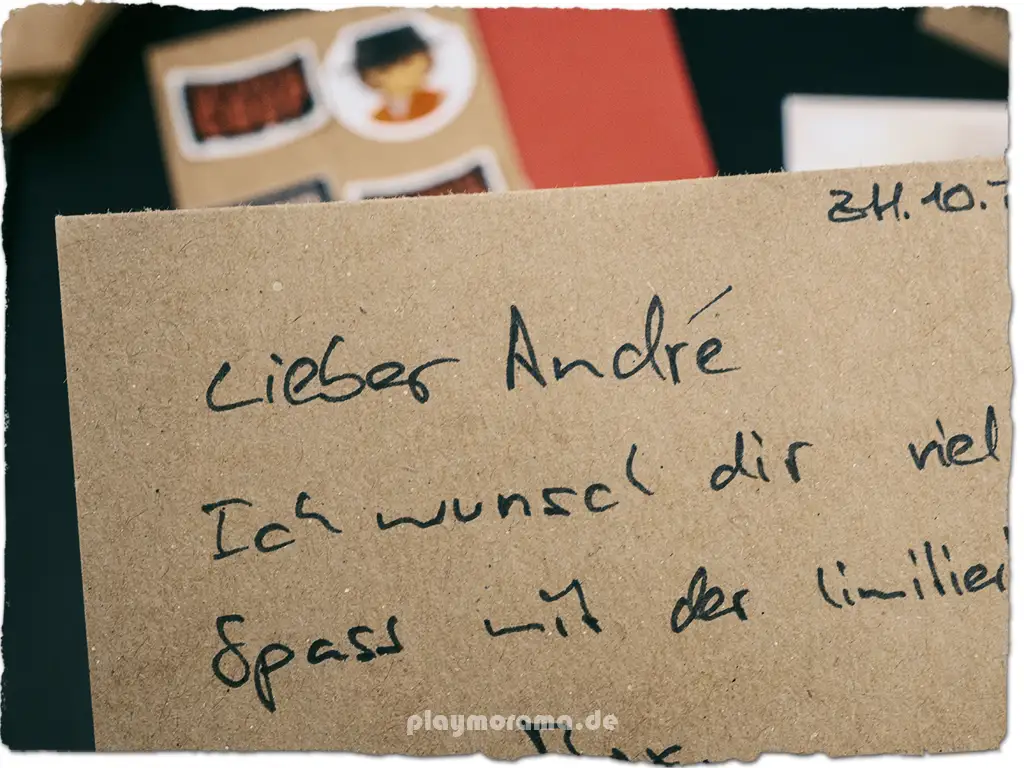 ZH. 10.7
Lieber André
Ich wunsch dir viel
Spass mit der limitier
playmorama.de